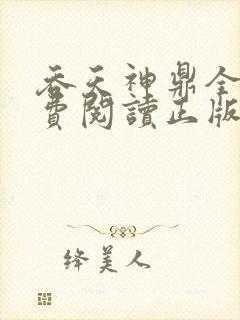 吞天神鼎全
費閱讀正版
绛美人